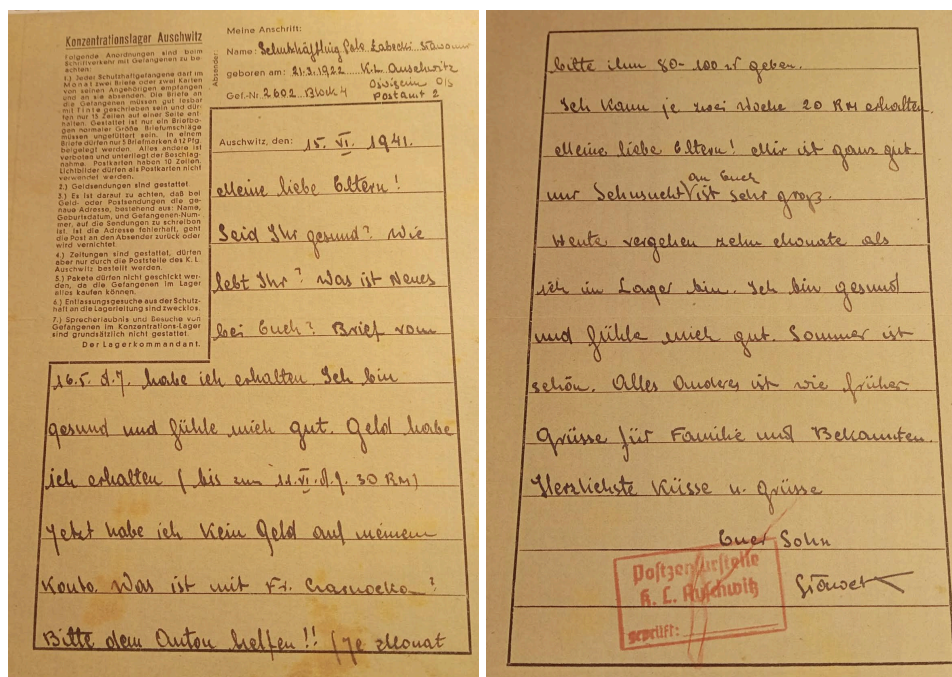 Konzentrationslager Auschwitz
Folgende Anordnungen sind beim
Schriftverkehr mit Gefangenen zu be-
achten:
1.) Jeder Schutzhaftgefangene darf im
Monat zwei Briefe oder zwei Karten
von seinen Angehörigen empfangen
und an sie absenden. Die Briefe an
die Gefangenen müssen gut lesbar
mit Tinte geschrieben sein und dür-
fen nur 15 Zeilen auf einer Seite ent-
halten. Gestattet ist nur ein Briefbo-
gen normaler Größe. Briefumschläge
müssen ungefüttert sein. In einem
Briefe dürfen nur 5 Briefmarken à 12 Pfg.
beigelegt werden. Alles andere ist
verboten und unterliegt der Beschlag-
nahme. Postkarten haben 10 Zeilen.
Lichtbilder dürfen als Postkarten nicht
verwendet werden.
2.) Geldsendungen sind gestattet.
3.) Es ist darauf zu achten, daß bei
Geld- oder Postsendungen die ge-
naue Adresse, bestehend aus: Name,
Geburtsdatum, und Gefangenen-Num-
mer, auf die Sendungen zu schreiben
ist. Ist die Adresse fehlerhaft, geht
die Post an den Absender zurück oder
wird vernichtet.
4.) Zeitungen sind gestattet, dürfen
aber nur durch die Poststelle des K. L.
Auschwitz bestellt werden.
5.) Pakete dürfen nicht geschickt wer-
den, da die Gefangenen im Lager
alles kaufen können.
6.) Entlassungsgesuche aus der Schutz-
haft an die Lagerleitung sind zwecklos.
7.) Sprecherlaubnis und Besuche von
Gefangenen im Konzentrations-Lager
sind grundsätzlich nicht gestattet.
Der Lagerkommandant.
Absender:
Meine Anschrift:
Name: Schutzhäftling Pole Łabęcki
geboren am: 21.3.1922 K.L. Auschwitz
Gef.-Nr. 2602 Block 4 O/S
Postamt 2
Auschwitz, den: 15. VI. 1941.
Meine liebe Eltern!
Seid Ihr gesund? Wie
lebt Ihr? Was ist Neues
bei Euch? Brief vom
16.5. d.J. habe ich erhalten Ich bin
gesund und fühle mich gut. Geld habe
ich erhalten (bis zum 11.VI.d.J. 30 RM)
Jetzt habe ich kein Geld auf meinem
Konto. Was ist mit Fr. Czarnocka?
Bitte dem Anton helfen!! (Je Monat
bitte ihm 80-100 zł geben.
Ich kann je zwei Woche 20 RM erhalten
Meine liebe Eltern! Mir ist ganz gut
nur Sehnsucht an Euch ist sehr groß.
Heute vergehen zehn Monate als
ich in Lager bin. Ich bin gesund
und fühle mich gut. Sommer ist
schön. Alles Anderes ist wie früher
Grüsse für Familie und Bekannten.
Herzlichste Küsse u. Grüsse
Euer Sohn
Sławek
Postzensurstelle
K. L. Auschwitz
geprüft: